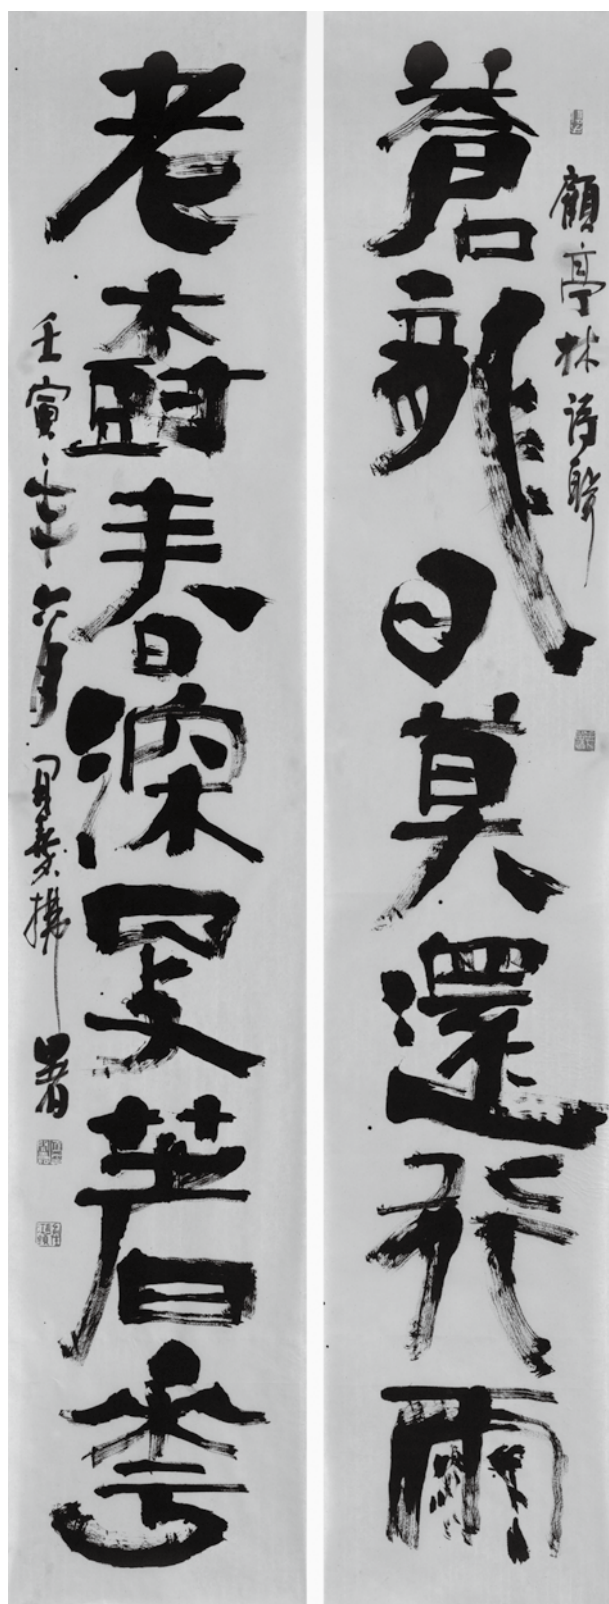 顧亭林詩聯
蒼龍日莫還行雨
老樹春深更著華
壬寅年六月